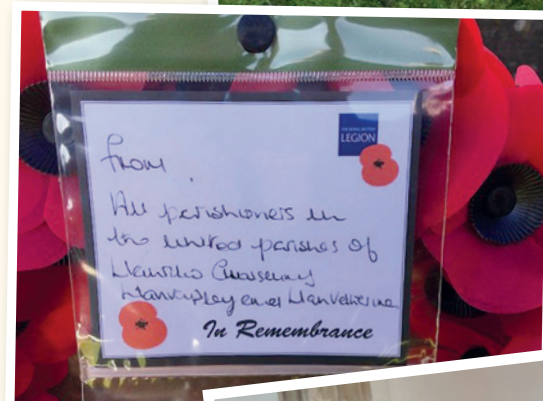 THE ROYAL BRITISH
LEGION
From
All parishioners in
the united parishes of
Llantilio Crossenny
Llanvapley and Llanvetherine
In Remembrance